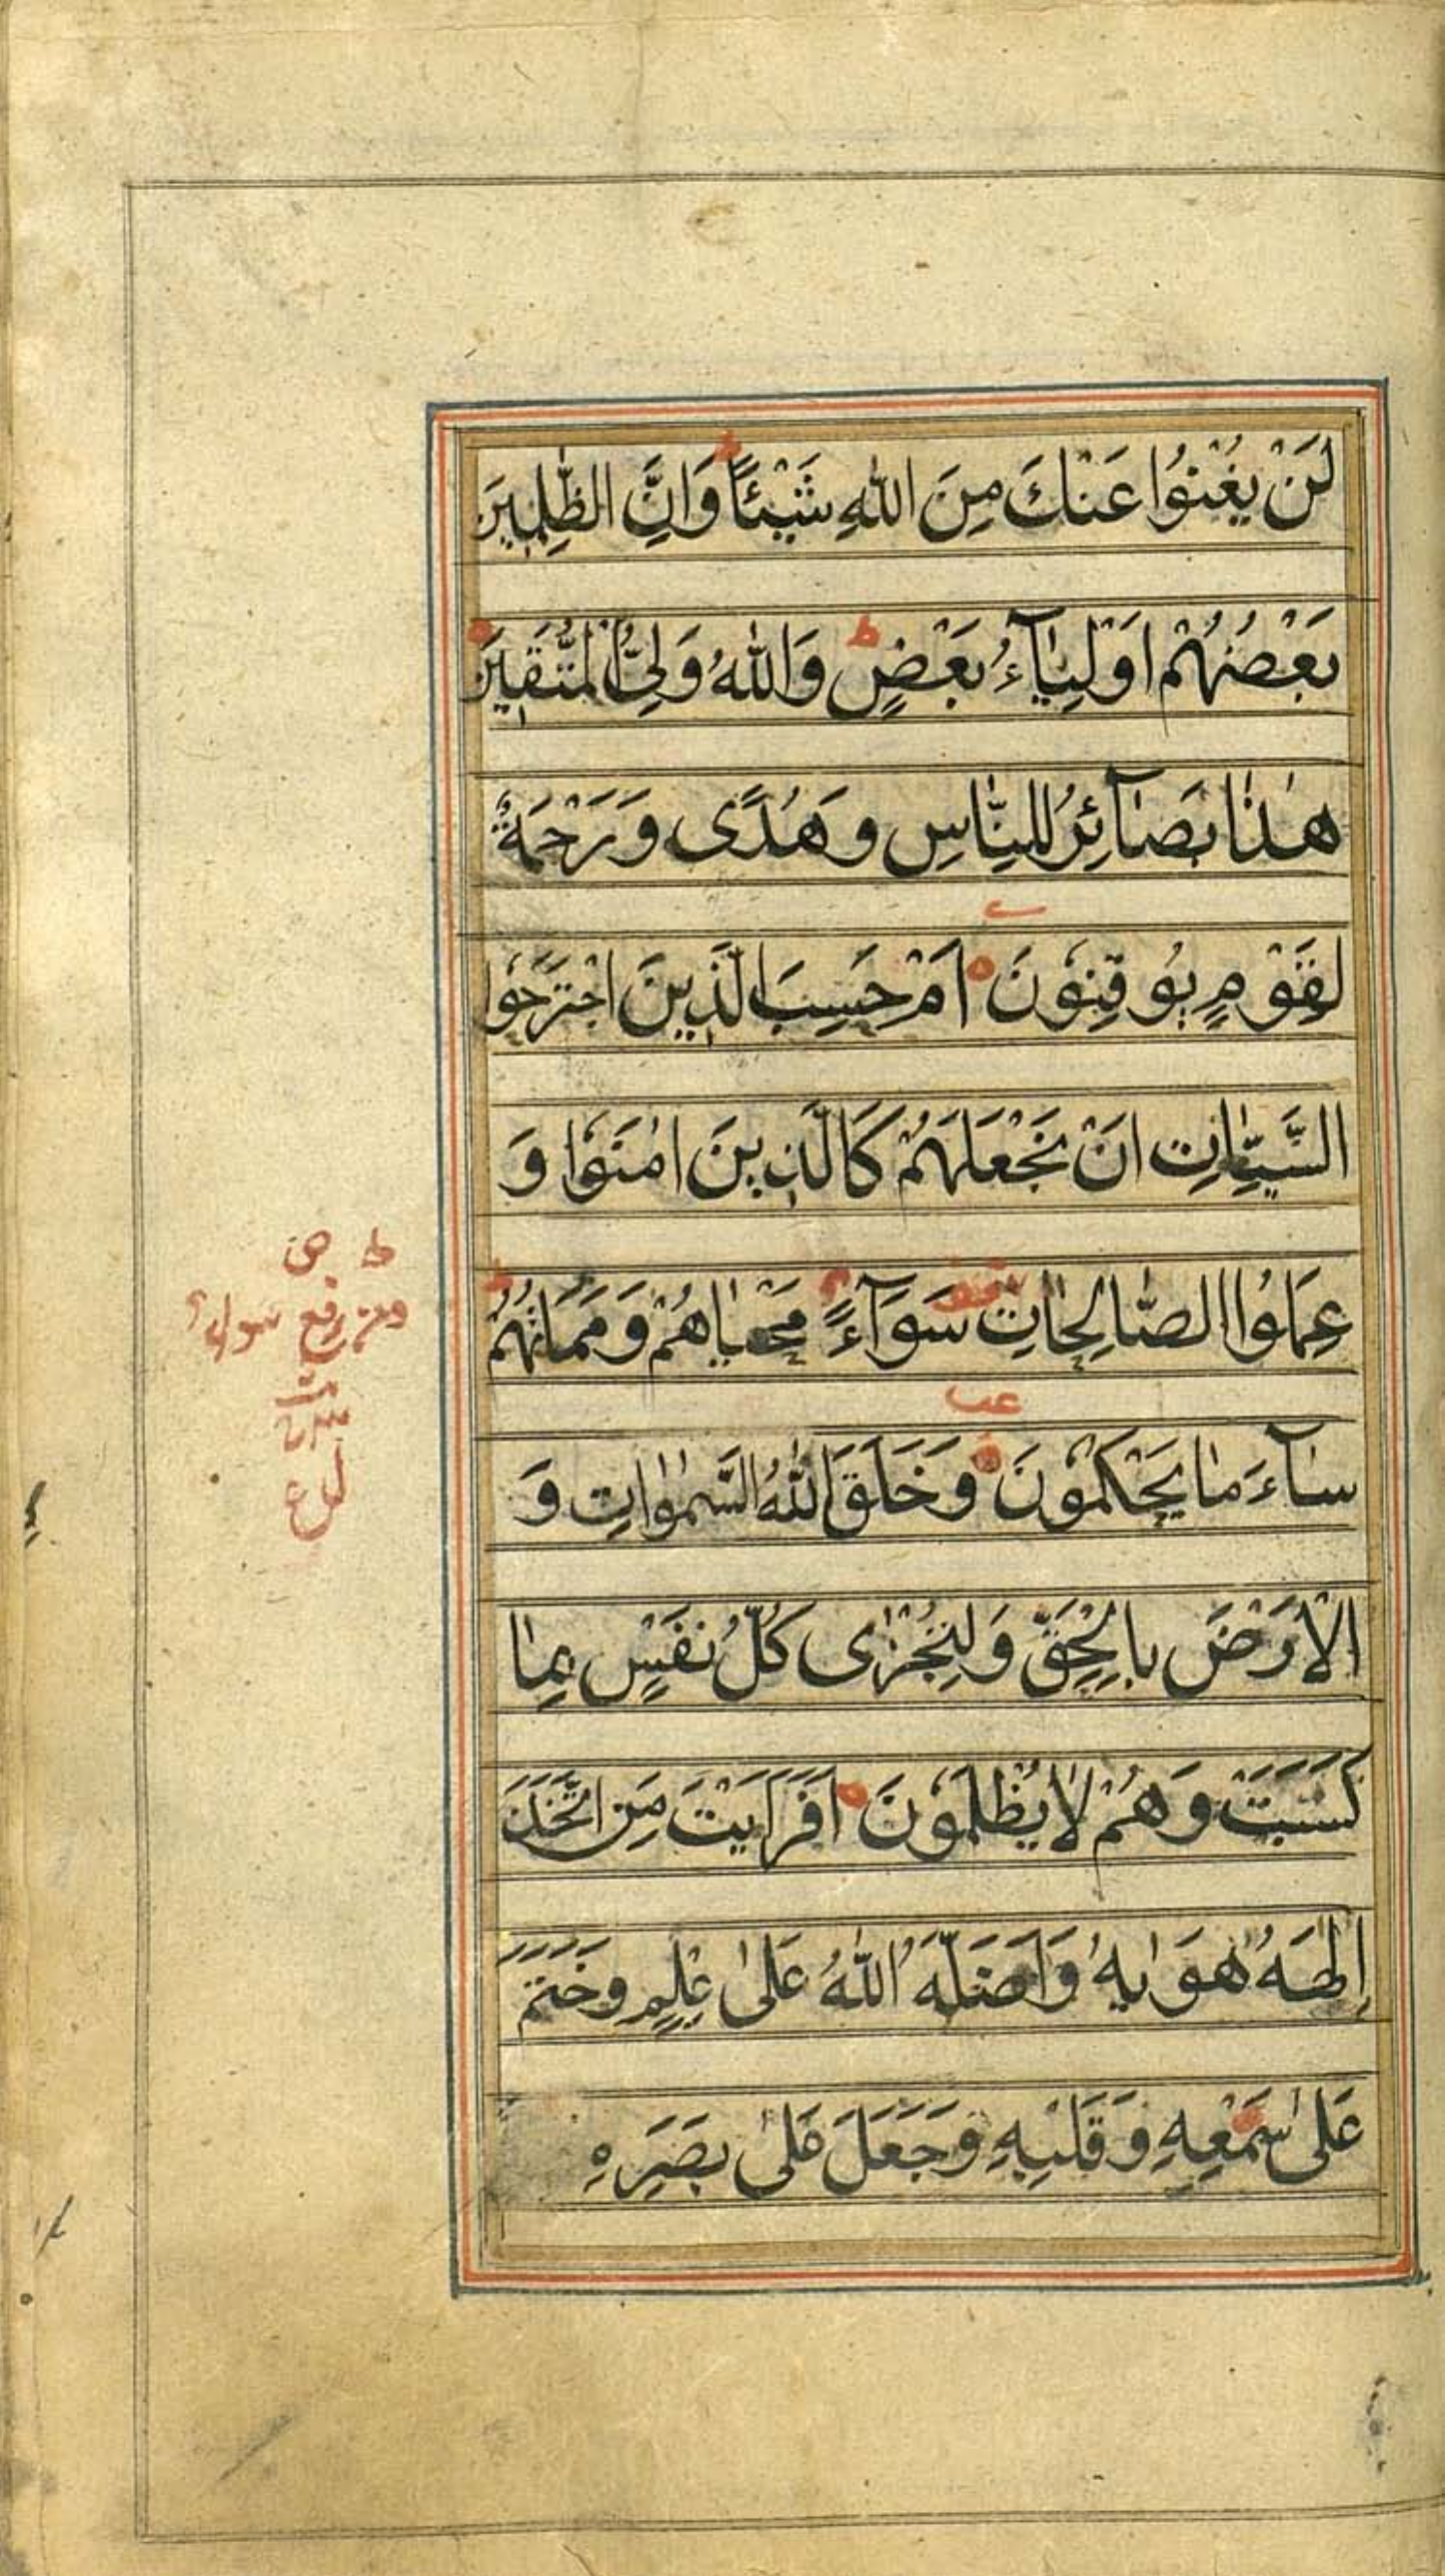 لَنْ يُغْنُوا عَنْكَ مِنَ اللّٰهِ شَيْئًا ط وَاِنَّ الظّٰلِمِيْنَ
بَعْضُهُمْ اَوْلِيَآءُ بَعْضٍ ط وَاللّٰهُ وَلِىُّ الْمُتَّقِيْنَ
هٰذٰا بَصَآئِرُ لِلنّٰاسِ وَهُدًى وَرَحْمَةٌ
لِقَوْمٍ يُوقِنُونَ اَمْ حَسِبَ الَّذِينَ اجْتَرَحُوا
السَّيِّئٰاتِ اَنْ نَجْعَلَهُمْ كَالَّذِينَ اٰمَنُوا وَ
عَمِلُوا الصّٰالِحٰاتِ سَوَآءً مَحْيٰاهُمْ وَمَمَاتُهُمْ
سٰآءَ مٰا يَحْكُمُونَ وَخَلَقَ اللّٰهُ السَّمٰوٰاتِ وَ
الْاَرْضَ بِالْحَقِّ وَلِتُجْزٰى كُلُّ نَفْسٍ بِمٰا
كَسَبَتْ وَهُمْ لٰا يُظْلَمُونَ اَفَرَاَيْتَ مَنِ اتَّخَذَ
اِلٰهَهُ هَوٰيهُ وَاَضَلَّهُ اللّٰهُ عَلىٰ عِلْمٍ وَخَتَمَ
عَلىٰ سَمْعِهِ وَقَلْبِهِ وَجَعَلَ عَلىٰ بَصَرِهِ